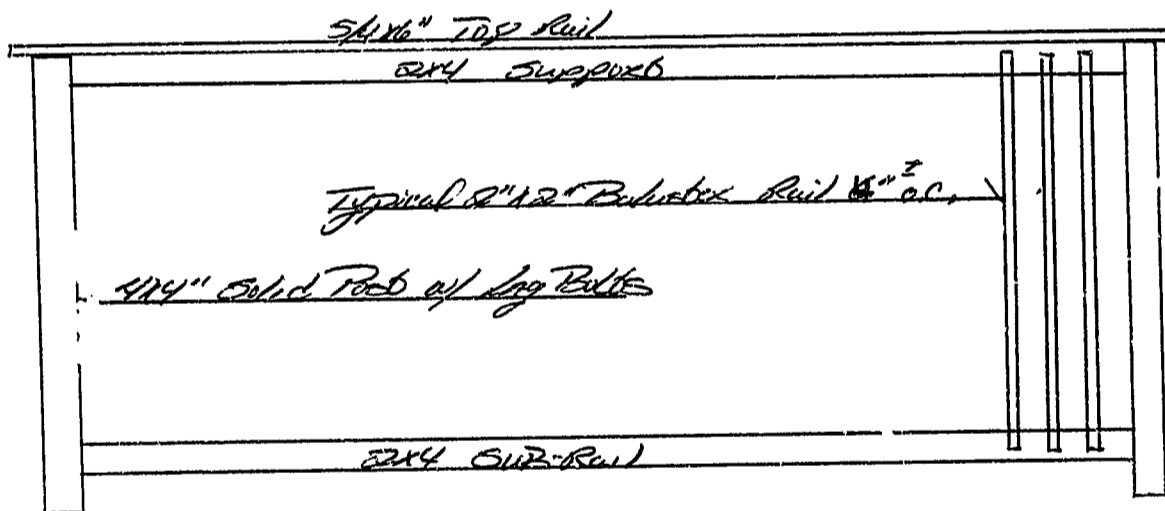 5/4x6" Top Rail
2x4 Support
Typical 2"x2" Baluster Rail o.c.
4x4" Solid Post w/ Lag Bolts
2x4 SUB-Rail